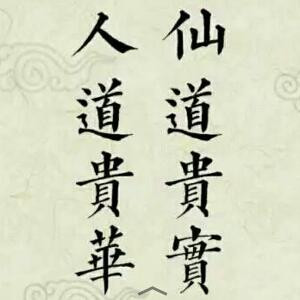 仙道貴實
人道貴華